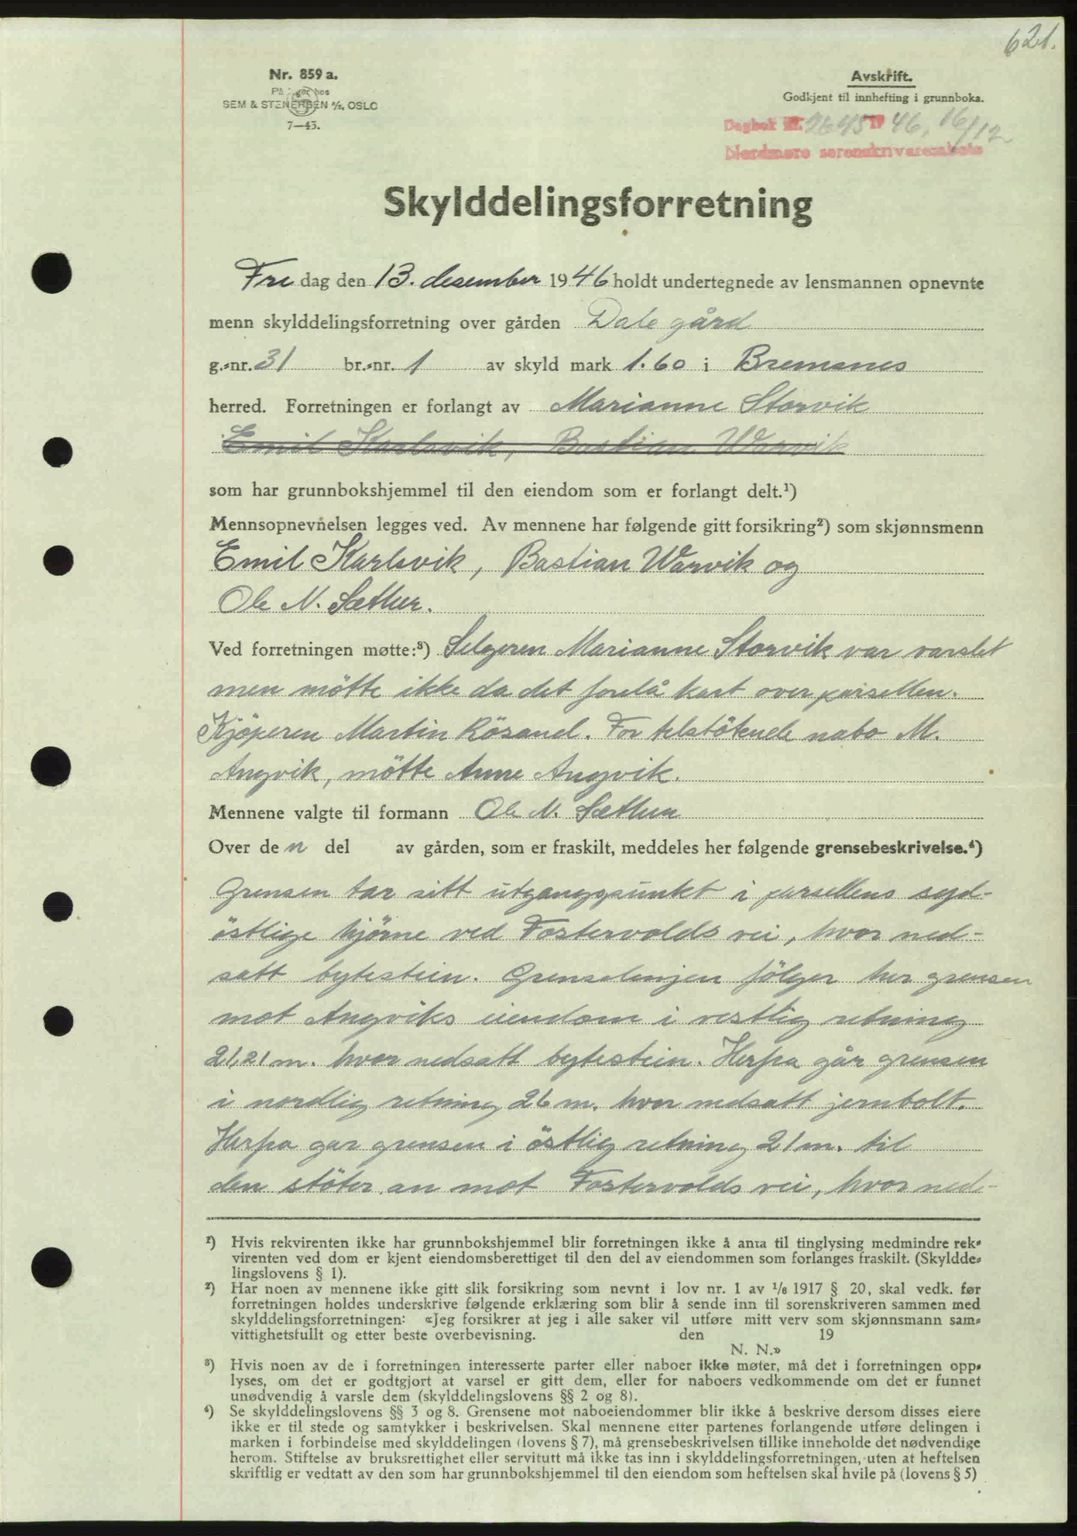 621.
Nr. 859 a.
På lager hos
SEM & STENERSEN A/S, OSLO
7—43.
Avskrift.
Godkjent til innhefting i grunnboka.
Dagbok nr. 2645 19 46, 16/12
Nordmøre sorenskriverembete
Skylddelingsforretning
Fre dag den 13. desember 1946 holdt undertegnede av lensmannen opnevnte
menn skylddelingsforretning over gården Dale gård
g.-nr. 31 br.-nr. 1 av skyld mark 1.60 i Bremsnes
herred. Forretningen er forlangt av Marianne Storvik
Emil Karlsvik, Bastian Warvik
som har grunnbokshjemmel til den eiendom som er forlangt delt.¹)
Mennsopnevnelsen legges ved. Av mennene har følgende gitt forsikring²) som skjønnsmenn
Emil Karlsvik, Bastian Warvik og
Ole N. Sæther.
Ved forretningen møtte:³) Selgeren Marianne Storvik var varslet
men mötte ikke da det forelå kart over parsellen.
Kjöperen Martin Rösand. For tilstötende nabo M.
Angvik, mötte Anne Angvik.
Mennene valgte til formann Ole N. Sæther
Over de n del av gården, som er fraskilt, meddeles her følgende grensebeskrivelse.⁴)
Grensen tar sitt utgangspunkt i parsellens syd-
östlige hjörne ved Fostervolds vei, hvor ned-
satt bytestein. Grenselinjen fölger her grensen
mot Angviks eiendom i vestlig retning
21,21 m. hvor nedsatt bytestein. Herfra går grensen
i nordlig retning 26 m. hvor nedsatt jernbolt.
Herfra gar grensen i östlig retning 21 m. til
den stöter an mot Fostervolds vei, hvor ned-
¹) Hvis rekvirenten ikke har grunnbokshjemmel blir forretningen ikke å anta til tinglysing medmindre rek-
virenten ved dom er kjent eiendomsberettiget til den del av eiendommen som forlanges fraskilt. (Skyldde-
lingslovens § 1).
²) Har noen av mennene ikke gitt slik forsikring som nevnt i lov nr. 1 av 1/6 1917 § 20, skal vedk. før
forretningen holdes underskrive følgende erklæring som blir å sende inn til sorenskriveren sammen med
skylddelingsforretningen: «Jeg forsikrer at jeg i alle saker vil utføre mitt verv som skjønnsmann sam-
vittighetsfullt og etter beste overbevisning. den 19
N. N.»
³) Hvis noen av de i forretningen interesserte parter eller naboer ikke møter, må det i forretningen opp-
lyses, om det er godtgjort at varsel er gitt dem, eller for naboers vedkommende om det er funnet
unødvendig å varsle dem (skylddelingslovens §§ 2 og 8).
⁴) Se skylddelingslovens §§ 3 og 8. Grensene mot naboeiendommer blir ikke å beskrive dersom disses eiere
ikke er til stede og samtykker i beskrivelsen. Skal mennene etter partenes forlangende utføre delingen i
marken i forbindelse med skylddelingen (lovens § 7), må grensebeskrivelsen tillike inneholde det nødvendige
herom. Stiftelse av bruksrettighet eller servitutt må ikke tas inn i skylddelingsforretningen, uten at heftelsen
skriftlig er vedtatt av den som har grunnbokshjemmel til den eiendom som heftelsen skal hvile på (lovens § 5)